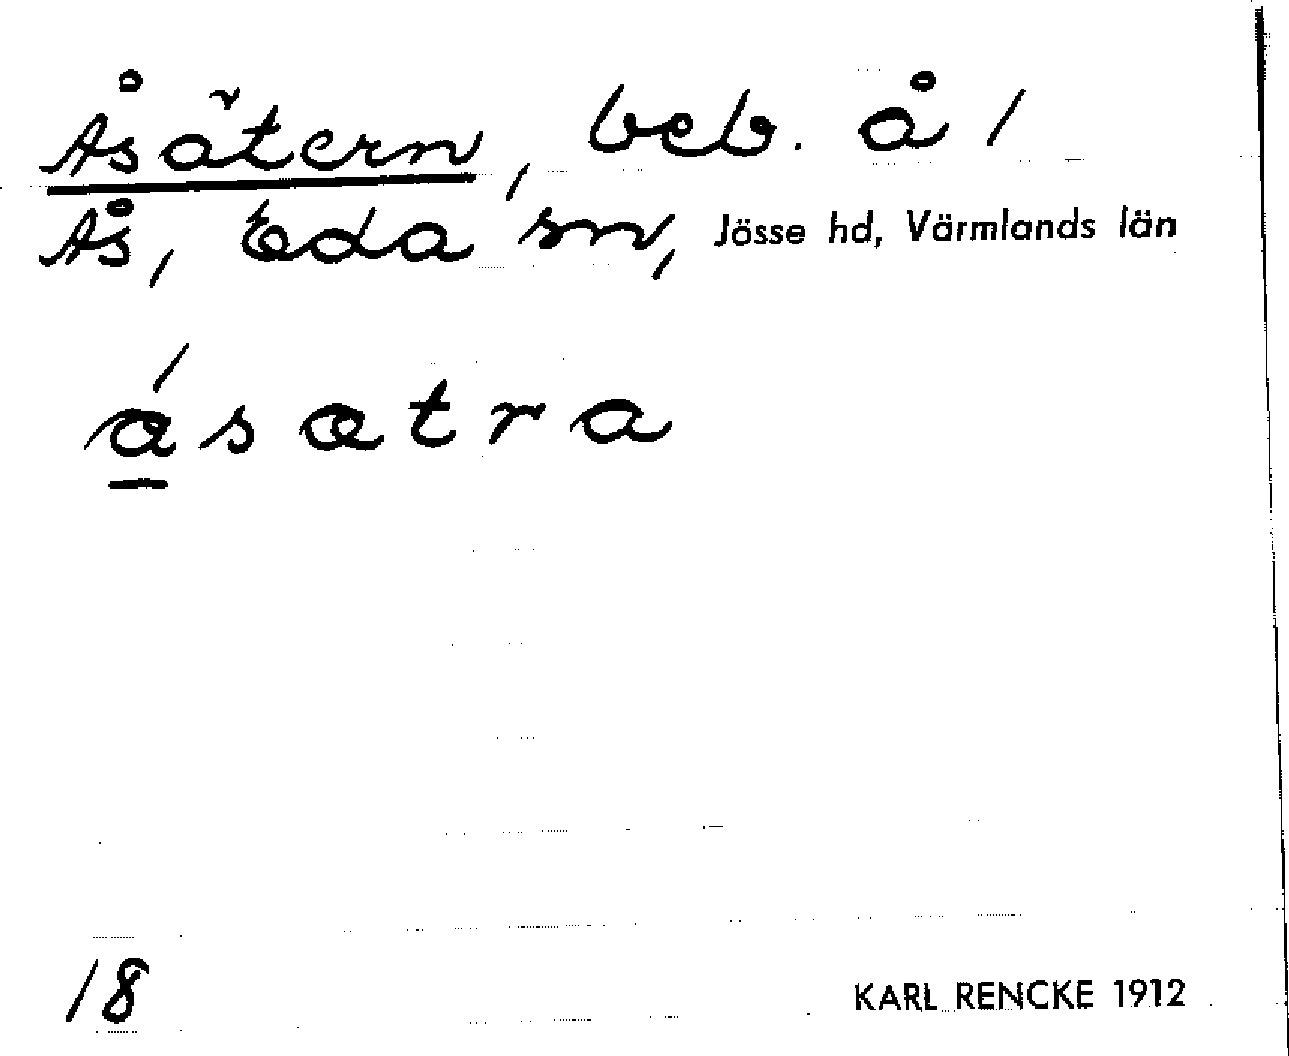 Åsätern, beb. å /
Ås, Eda sn, Jösse hd, Värmlands län
ásatra
18
KARL RENCKE 1912